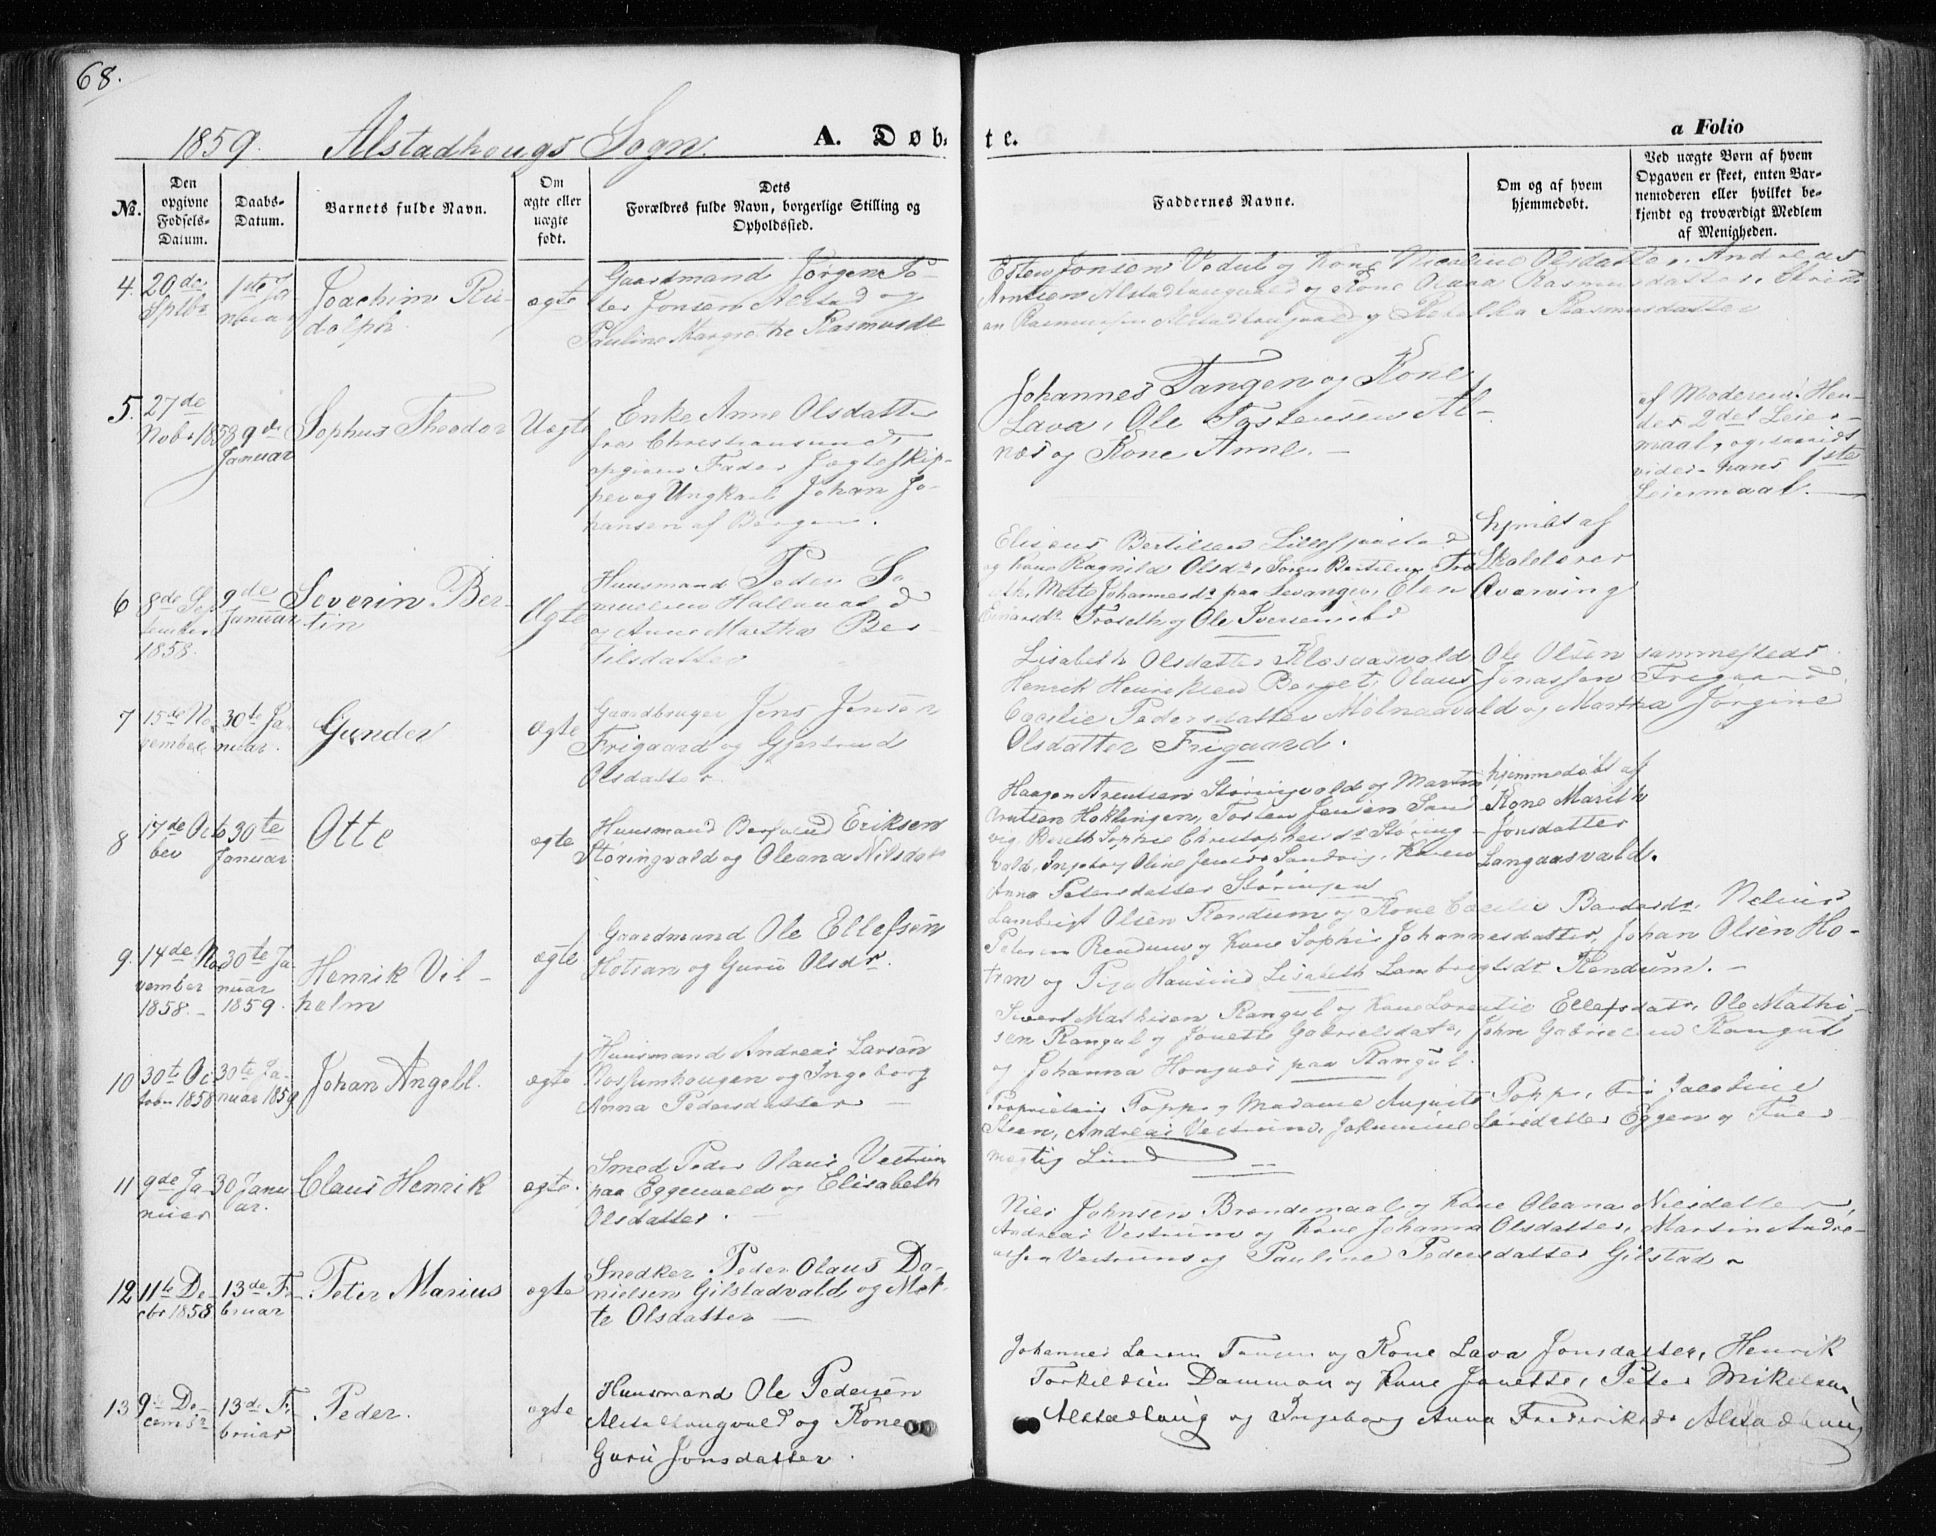 68.
1859. Alstadhougs Sogn.
A. Døbte.
a Folio
No.
Den opgivne Fødsels-Datum.
Daabs-Datum.
Barnets fulde Navn.
Om ægte eller uægte født.
Dets Forældres fulde Navn, borgerlige Stilling og Opholdssted.
Faddernes Navne.
Om og af hvem hjemmedøbt.
Ved uægte Børn af hvem Opgaven er skeet, enten Barnemoderen eller hvilket bekjendt og troværdigt Medlem af Menigheden.
4. 20de Sptbr
1ste Januar
Joachim Rudolph
ægte
Gaardmand Jørgen Peter Jonsen Alstad og
Pauline Margrethe Rasmusdr
Esten Jonsen Vedul og Kone Nicoline Olsdatter, Andreas
Arntsen Alstadhaugvald og Kone Rasmusdatter,
Rasmussen Alstadhaugvald og Rebekka Rasmusdatter
5. 27de Nobr 1858
9de Januar
Sophus Theodor
Uægte
Enke Anne Olsdatter
fra Christiansund,
opgiven Fader Jægteskip-
per og Ungkarl Johan Jo-
hansen af Bergen.
Johannes Tangen og Kone
Lava, Ole Tostensen Al-
næs og Kone Anne. —
af Moderen, Hen-
des 2det Leier-
maal, og, saavidt
vides hans 1ste
Leiermaal. —
6 8de September 1858.
9de Januar
Severin Bertin
Ægte
Huusmand Peder Sa-
muelsen Halland
og Anne Martha Ber-
tilsdatter
Eliseus Bertilsen
og Kone Ragnild Olsdr, Bertilsen
Mette Johannesdr paa Levanger, Elen
Einarsdr Troseth og Ole Iversen
hjmdbt af
Skolelærer
Qvarving
7 15de November
30te Januar.
Gunder
ægte
Gaardbruger Jens Jensen
Frigaard og Gjertrud
Olsdatter.
Lisabeth Olsdatter Klosaasvald, Ole Olsen sammesteds.
Henrik Henriksen Berget, Olaus Jonassen Frigaard,
Cecilie Pedersdatter Molnaavald og Martha Jørgine
Olsdatter Frigaard.
8 17de Octbber
30te Januar
Otte
ægte
Huusmand Eriksen
Støringvald og Oleana Nilsdatr
Haagen Arentsen Støringvald og Martin
Arntsen Hoklingen, Tosten Jensen Sand-
vig, Berith Sophie Christophersdr Støring-
vald, Ingeborg Oline Jensdr Sandvig, Karen
Anna Petersdatter Støringen
hjemmedøbt af
Kone Marith
Jonsdatter
Langaasvald.
9. 14de November 1858. —
30te Januar 1859.
Henrik Vilhelm
ægte
Gaardmand Ole Ellefsen
Hotran og Guru Olsdr.
Lambrigt Olsen Rendum og Kone Cecilie Bardosdr, Nelius
Petersen Rendum og Kone Sophie Johannesdatter, Johan Olsen Ho-
tran og Pige Lisabeth Lambrigtsdr Rendum. —
10 30te Octobr 1858
30te Januar 1859
Johan Angell.
ægte
Huusmand Andreas Larsen
Rossumhougen og Ingeborg
Anna Pedersdatter —
Sivert Mathisen Rangul og Kone Lorentze Ellefsdatr, Ole Mathi-
sen Rangul og Jonette Gabrielsdatr, John Gabrielsen Rangul
og Johanna paa Rangul.
11 9de Januar
30 Januar.
Claus Henrik
ægte.
Smed Peder Olaus Vestrum
paa Eggenvald og Elisabeth
Olsdatter. —
Proprietair Foppe og Madame Auguste Foppe, Frø Jacobine
Steen, Andreas Vestrum, Jakumine Larsdatter Eggen og Fuld-
mægtig Lund
12 11te Decbr 1858
13de Februar
Peter Marius
ægte
Snedker Peder Olaus Da-
nielsen Gilstadvald og Met-
te Olsdatter —
Niels Johnsen Brandemaal og Kone Oleana Nielsdatter,
Andreas Vestrum og Kone Johanna Olsdatter, Martin Andre-
assen Vestrum og Pauline Pedersdatter Gilstad
13 9de Decembr
13de Februar
Peder.
ægte
Huusmand Ole Pedersen
Alstadhougvald og Kone
Guru Jonsdatter.
Johannes Larsen Tangen og Kone Lava Jonsdatter, Henrik
Torkildsen Damman og Kone Jonette, Peter Mikelsen
Alstadhaug og Ingeborg Anna Frederiksdr Alstadhaug